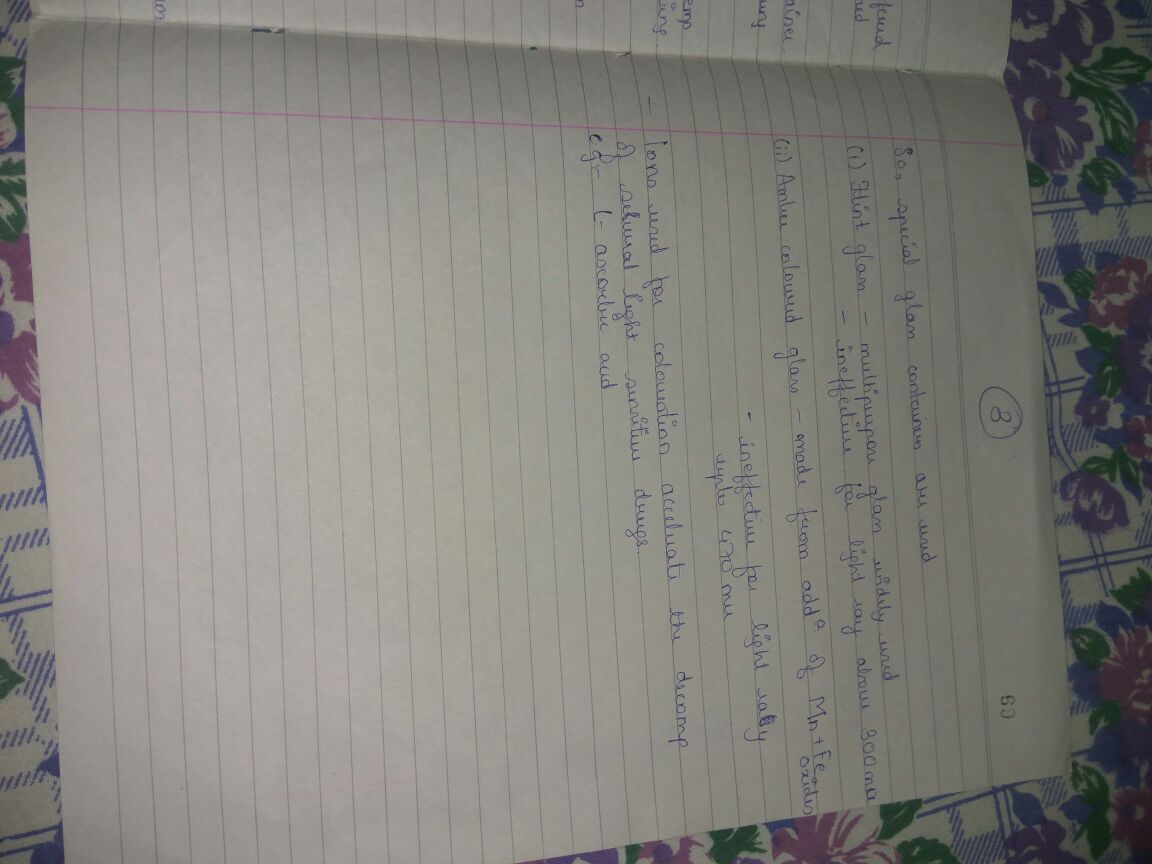 69
3
So, special glass containers are used
(i) Flint glass - multipurpose glass widely used
- ineffective for light ray above 300mu
(ii) Amber coloured glass - made from addn of Mn + Fe
oxides
- ineffective for light ray
upto 470 mu
- Ions used for colouration accelerate the decomp
of several light sensitive drugs.
eg - L- ascorbic acid